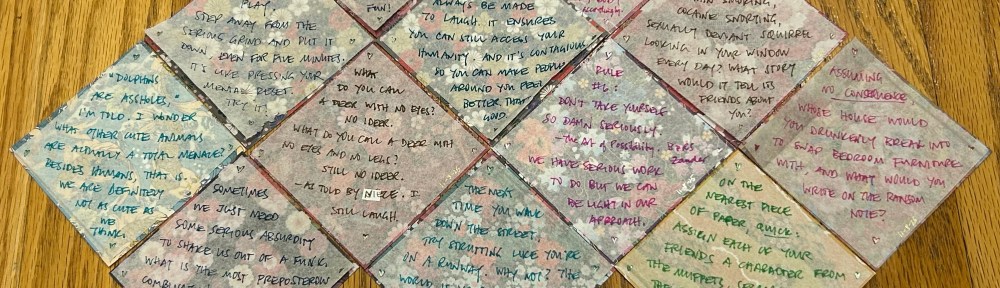 PLAY.
STEP AWAY FROM THE
SERIOUS GRIND AND PUT IT
DOWN. EVEN FOR FIVE MINUTES.
IT'S LIKE PRESSING YOUR
MENTAL RESET.
TRY IT!
FUN!
ALWAYS BE MADE
TO LAUGH. IT ENSURES
YOU CAN STILL ACCESS YOUR
HUMANITY. AND IT'S CONTAGIOUS
SO YOU CAN MAKE PEOPLE
AROUND YOU FEEL
BETTER. THAT'S
GOOD.
COCAINE SNORTING,
SEXUALLY DEVIANT SQUIRREL
LOOKING IN YOUR WINDOW
EVERY DAY? WHAT STORY
WOULD IT TELL ITS
FRIENDS ABOUT
YOU?
"DOLPHINS
ARE ASSHOLES,"
I'M TOLD. I WONDER
WHAT OTHER CUTE ANIMALS
ARE ACTUALLY A TOTAL MENACE?
BESIDES HUMANS, THAT IS.
WE ARE DEFINITELY
NOT AS CUTE AS
WE
THINK.
WHAT
DO YOU CALL
A DEER WITH NO EYES?
NO IDEER.
WHAT DO YOU CALL A DEER WITH
NO EYES AND NO LEGS?
STILL NO IDEER.
- AS TOLD BY NIECE. I
STILL LAUGH.
RULE
#6:
DON'T TAKE YOURSELF
SO DAMN SERIOUSLY
- The Art of Possibility, Zander
WE HAVE SERIOUS WORK
TO DO BUT WE CAN
BE LIGHT IN OUR
APPROACH.
ASSUMING
NO CONSEQUENCE
WHOSE HOUSE WOULD
YOU DRUNKENLY BREAK INTO
TO SWAP BEDROOM FURNITURE
WITH AND WHAT WOULD YOU
WRITE ON THE RANSOM
NOTE?
SOMETIMES
WE JUST NEED
SOME SERIOUS ABSURDITY
TO SHAKE US OUT OF A FUNK.
WHAT IS THE MOST PREPOSTEROUS
THE NEXT
TIME YOU WALK
DOWN THE STREET,
TRY STRUTTING LIKE YOU'RE
ON A RUNWAY. WHY NOT? THE
WORLD
ON THE
NEAREST PIECE
OF PAPER, QUICK:
ASSIGN EACH OF YOUR
FRIENDS A CHARACTER FROM
THE MUPPETS,